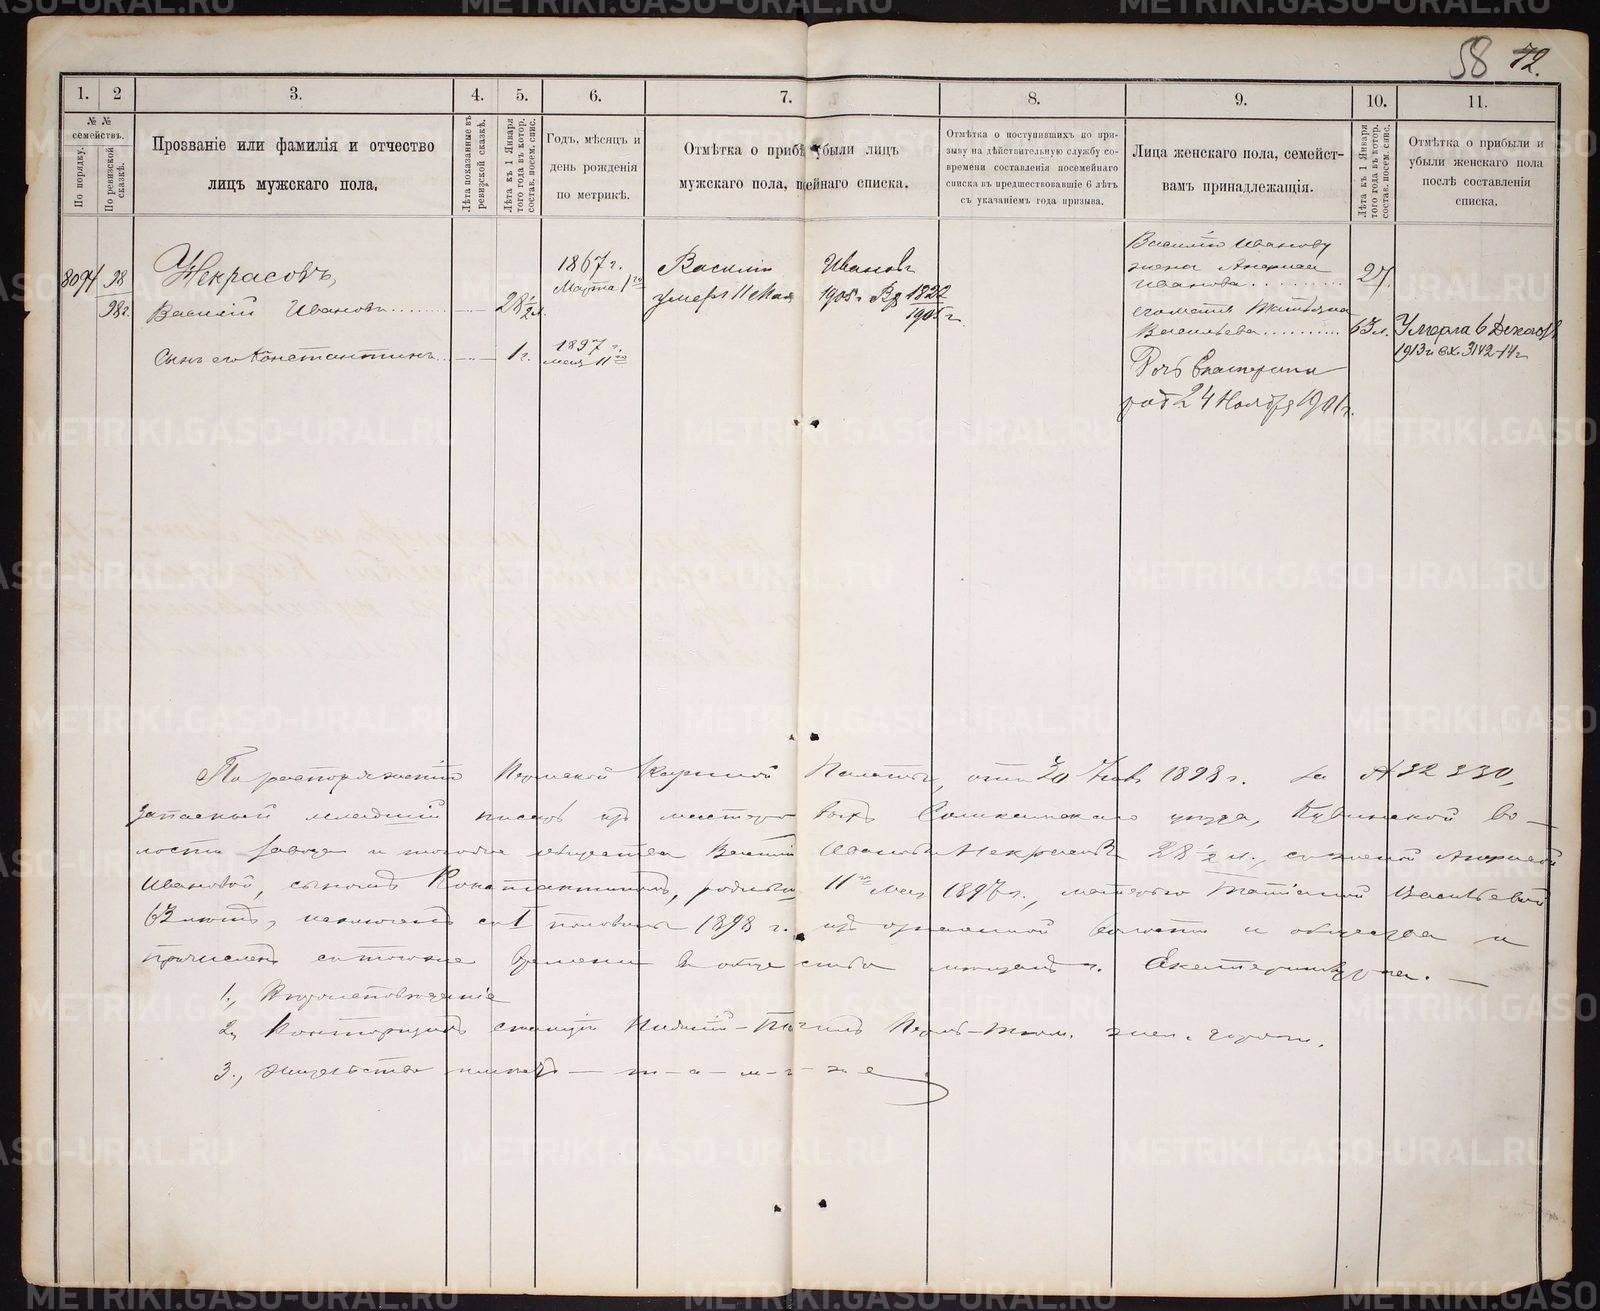 58 72.
1. 2 3. 4. 5. 6. 7. 8. 9. 10. 11.
№ № семействъ.
По порядку.
По ревизской сказкѣ.
Прозваніе или фамилія и отчество
лицъ мужскаго пола.
Лѣта показанные въ
ревизской сказкѣ.
Лѣта къ 1 Января
того года въ котор.
состав. посем. спис.
Годъ, мѣсяцъ и
день рожденія
по метрикѣ.
Отмѣтка о прибы убыли лицъ
мужскаго пола, п ейнаго списка.
Отмѣтка о поступившихъ по при-
зыву на дѣйствительную службу со-
времени составленія посемейнаго
списка въ предшествовавшіе 6 лѣтъ
съ указаніемъ года призыва.
Лица женскаго пола, семейст-
вамъ принадлежащія.
Лѣта къ 1 Января
того года въ котор.
состав. посем. спис.
Отмѣтка о прибыли и
убыли женскаго пола
послѣ составленія
списка.
98
98г.
Некрасовъ,
Василій Ивановъ
28 1/2 л.
1867 г.
Марта 1го
Сынъ его Константинъ
1 г.
1897 г.
мая 11го
Василій Ивановъ
умеръ 11 Мая 1905г Вх 1822
1905 г.
Василія Иванову
жена Анфиса
Иванова
27.
его мать Татьяна
Васильева
63 л.
Умерла 6 Декабря
1913 г вх 3142-14г
Дочь Екатерина
род 24 Ноября 1901 г.
По распоряженію Пермской Казенной Палаты, отъ 20 Янв 1898 г. за №
запасный младшій писарь изъ мастеро выхъ Соликамскаго уѣзда, Кувинской во-
лости завода и того же общества Василій Ивановъ Некрасовъ 28 1/2 л., съ женой Анфисой
Ивановой, сыномъ Константиномъ, родивш. 11го Мая 1897 г., матерью Татьяной Васильевой
63 лѣтъ, исключенъ съ I половины 1898 г. изъ волости и общества и
причисленъ съ того же времени въ общество мѣщанъ г. Екатеринбурга.
1., Вѣроисповѣданіе
2, Конторщикъ станціи Нижній-Тагилъ Пермь-Тюм. жел. дороги.
3., жительство имѣетъ — т-а-м-ъ-ж-е
METRIKI.GASO-URAL.RU